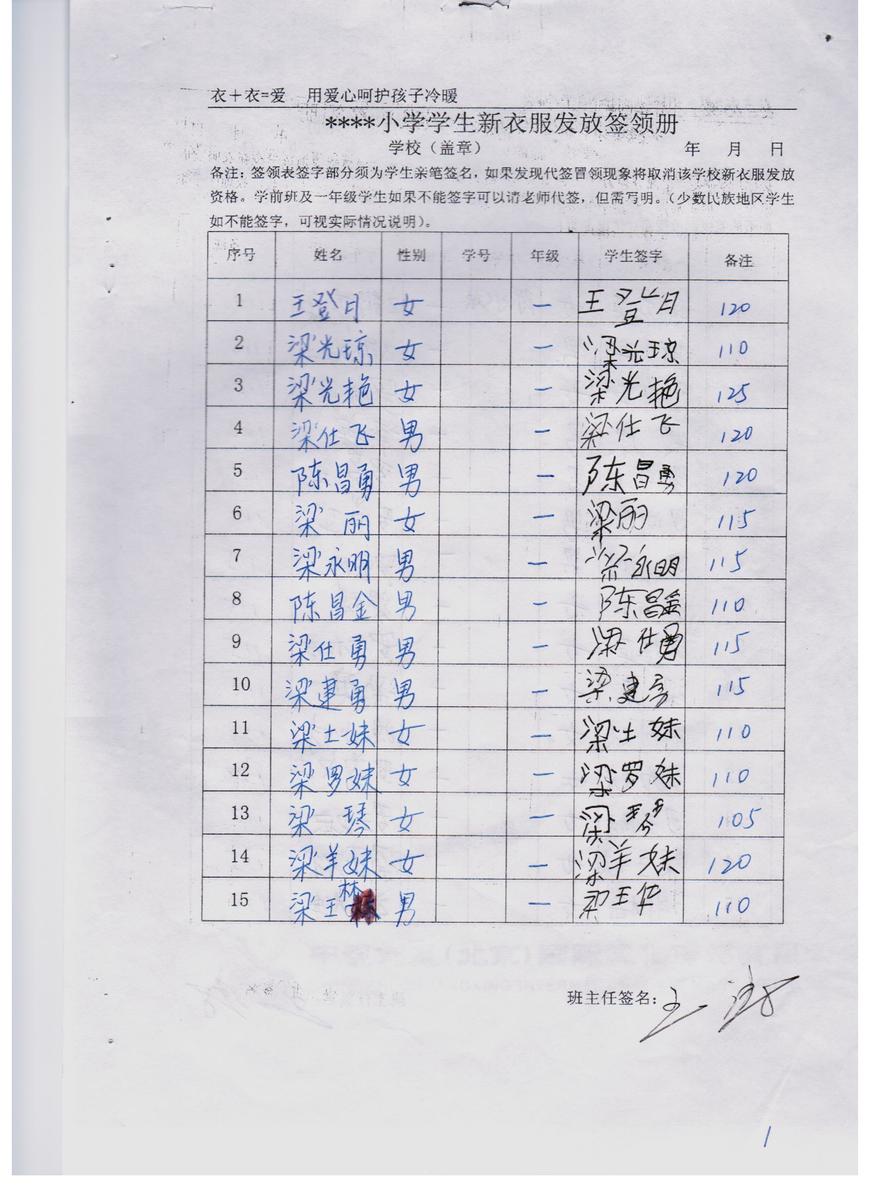 衣+衣=爱 用爱心呵护孩子冷暖
****小学学生新衣服发放签领册
学校（盖章） 年 月 日
备注：签领表签字部分须为学生亲笔签名，如果发现代签冒领现象将取消该学校新衣服发放
资格。学前班及一年级学生如果不能签字可以请老师代签，但需写明。（少数民族地区学生
如不能签字，可视实际情况说明）。
序号 姓名 性别 学号 年级 学生签字 备注
1 王登月 女 一 王登月 120
2 梁光琼 女 一 梁光琼 110
3 梁光艳 女 一 梁光艳 125
4 梁仕飞 男 一 梁仕飞 120
5 陈昌勇 男 一 陈昌勇 120
6 梁丽 女 一 梁丽 115
7 梁永明 男 一 梁永明 115
8 陈昌金 男 一 陈昌金 110
9 梁仕勇 男 一 梁仕勇 115
10 梁建勇 男 一 梁建 115
11 梁土妹 女 一 梁土妹 110
12 梁罗妹 女 一 梁罗妹 110
13 梁琴 女 一 梁琴 105
14 梁羊妹 女 一 梁羊妹 120
15 梁王林 男 一 梁王 110
班主任签名：王
1